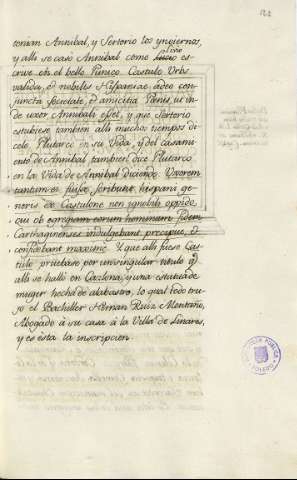 tenian Annibal, y Sertorio los ynviernos,
y alli se caso Annibal como Livio es
crive en el bello Punico. Castulo Urbs
valida, & nobilis Hispaniae adeo con
juncta Societate, & amicitia Penis, ut in
de uxor Annibali esset, y que Sertorio
estubiese tambien alli mucho tiempo di
celo Plutarco en su Vida, y del casami
ento de Annibal tambien dice Plutarco
en la Vida de Annibal diciendo Uxorem
tantum ei fuisse scribunt hispani ge
neris de Castulone non ignobili oppido
cui ob egregiam eorum hominum fidem
Carthaginenses indulgebant precipue, &
confidebant maxime. Y que alli fuese Cas
tulo pruebase por un singular titulo q.
alli se halló en Cazlona, y una estatua de
muger hecha de alabastro, lo qual todo tru
jo el Bachiller Hernan Ruiz Montaño,
Abogado à su casa à la Villa de Linares,
y es esta la inscripcion